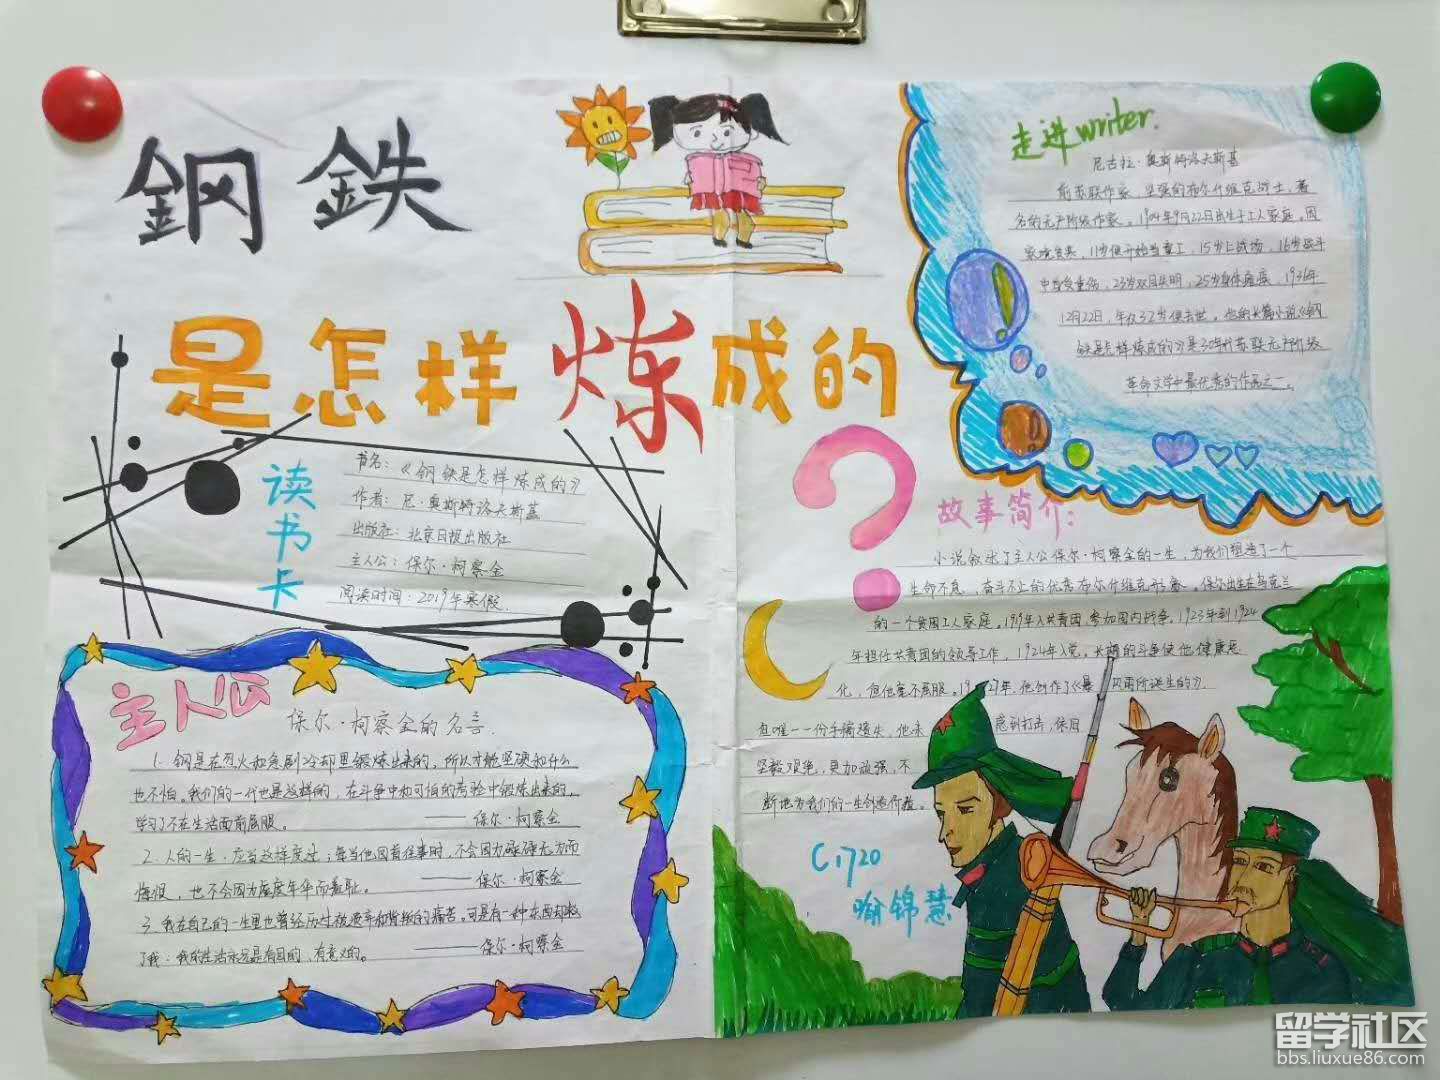 鋼鉄
是怎样炼成的
读书卡
书名：《钢铁是怎样炼成的》
作者：尼·奥斯特洛夫斯基
出版社：北京日报出版社
主人公：保尔·柯察金
阅读时间：2019年寒假.
主人公
保尔·柯察金的名言.
1. 钢是在烈火和急剧冷却里锻炼出来的，所以才能坚硬和什么
也不怕。我们的一代也是这样的，在斗争中和可怕的考验中锻炼出来的，
学习了不在生活面前屈服。 ——保尔·柯察金
2. 人的一生，应当这样度过：每当他回首往事时，不会因为碌碌无为而
悔恨，也不会因为虚度年华而羞耻。 ——保尔·柯察金
3. 我在自己的一生里也曾经历过被遗弃和背叛的痛苦。可是有一种东西却救
了我：我的生活永远是有目的、有意义的。 ——保尔·柯察金
走进writer.
尼古拉·奥斯特洛夫斯基
前苏联作家，坚强的布尔什维克战士，著
名的无产阶级作家。1904年9月22日出生于工人家庭，因
家境贫寒，11岁便开始当童工，15岁上战场，16岁战斗
中曾受重伤，23岁双目失明，25岁身体瘫痪，1936年
12月22日，年仅32岁便去世。他的长篇小说《钢
铁是怎样炼成的》是30年代苏联无产阶级
革命文学中最优秀的作品之一。
?
故事简介：
小说叙述了主人公保尔·柯察金的一生，为我们塑造了一个
生命不息，奋斗不止的优秀布尔什维克形象。保尔出生在乌克兰
的一个贫困工人家庭。1919年入共青团，参加国内战争。1923年到1924
年担任共青团的领导工作，1924年入党。长期的斗争使他健康恶
化，但他毫不屈服。19 27年，他创作了《暴 风雨所诞生的》
但唯一一份手稿遗失，他未 感到打击，依旧
坚毅艰绝，更加顽强，不
断地为我们的一生创造价值。
C1720
喻锦慧
留学社区
bbs.liuxue86.com